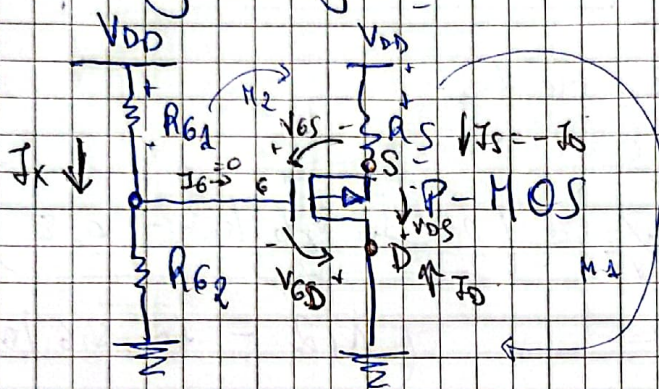 VDD
VDD
M2
RG1
VGS
RS
IS = -ID
IX
IG→=0
G
S
P-MOS
VDS
RG2
VGD
D
ID
M1